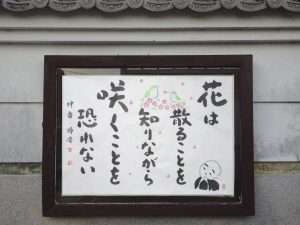 花は
散ることを
知りながら
咲くことを
恐れない